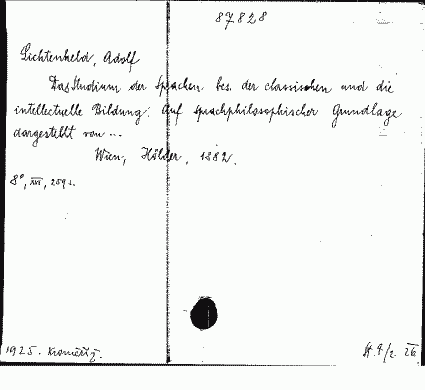 87828
Lichtenheld, Adolf
Das Studium der Sprachen bes. der classischen und die
intellectuelle Bildung. Auf sprachphilosophischer Grundlage
dargestellt von ...
Wien, Hölder, 1882.
8°, XVI, 259 s.
1925. Kroměříž.